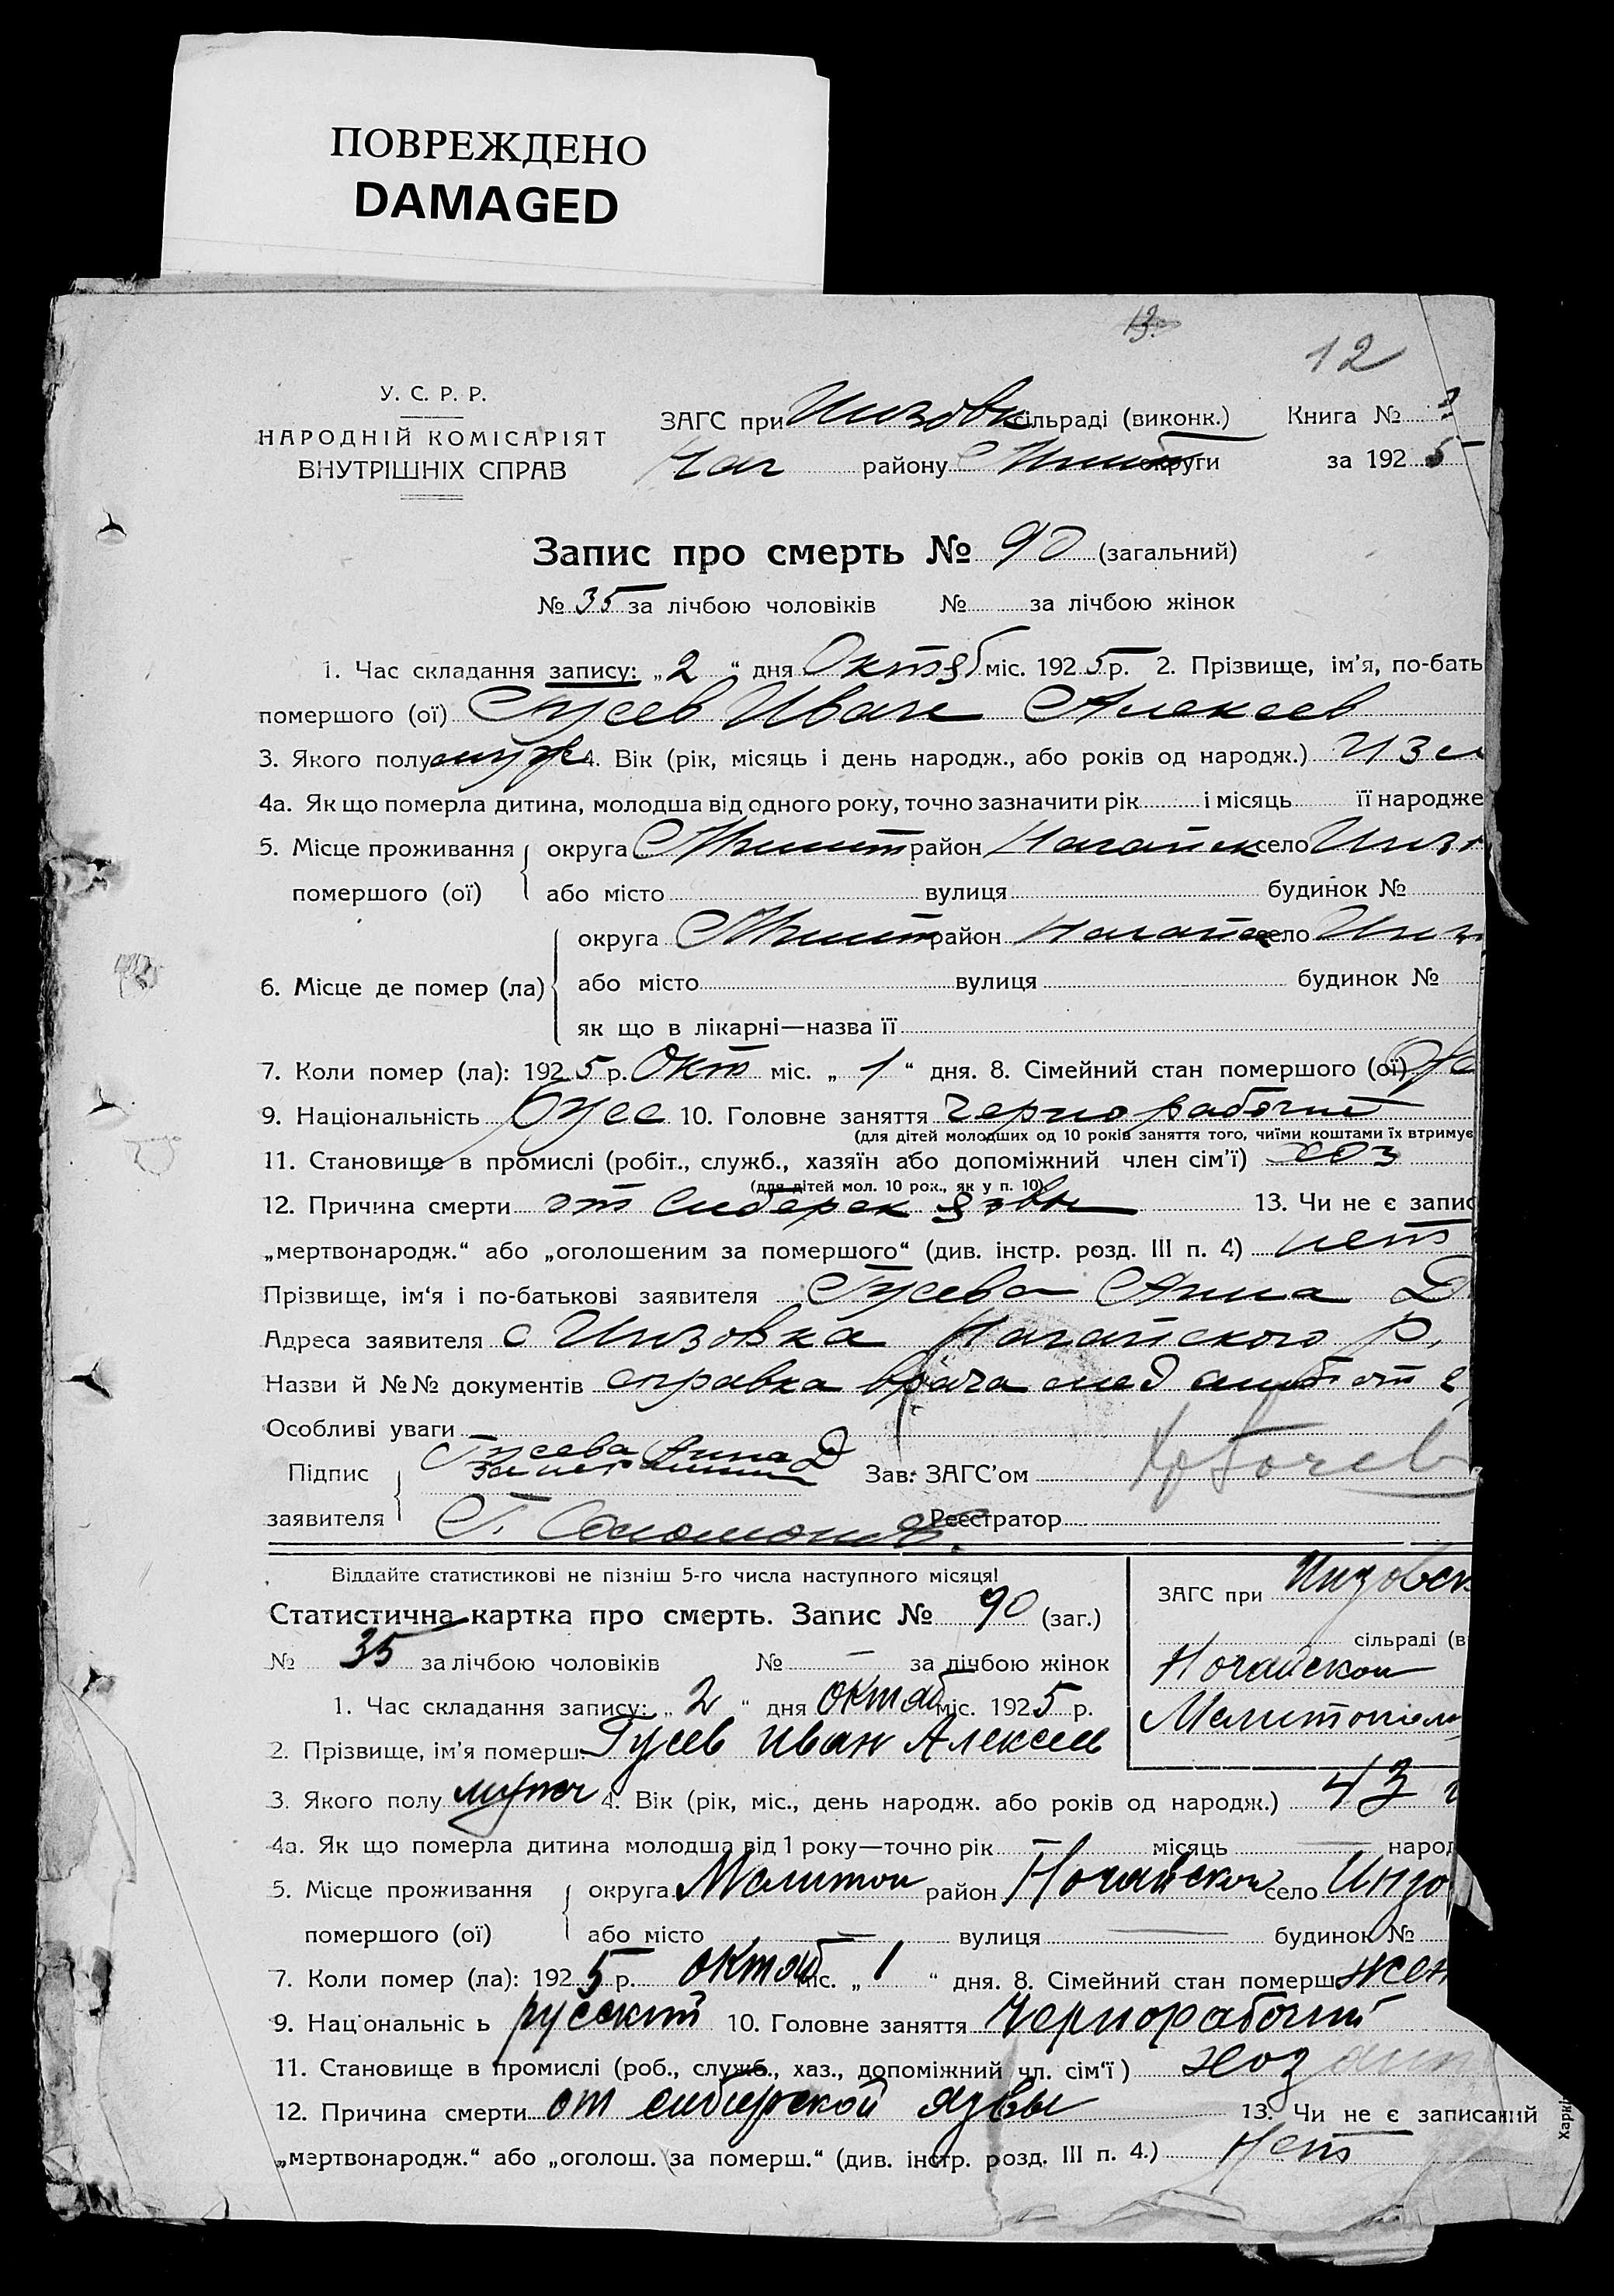 ПОВРЕЖДЕНО
DAMAGED
12
У. С. Р. Р.
НАРОДНІЙ КОМІСАРІЯТ
ВНУТРІШНІХ СПРАВ
ЗАГС при Инзовк сільраді (виконк.) Книга №
Ног району округи за 1925
Запис про смерть № 90 (загальний)
№ 35 за лічбою чоловіків № за лічбою жінок
1. Час складання запису: „2“ дня Октяб міс. 1925 р. 2. Прізвище, ім’я, по-бать
помершого (ої) Гусев Иван Алексеев
3. Якого полу муж 4. Вік (рік, місяць і день народж., або років од народж.) 43
4а. Як що померла дитина, молодша від одного року, точно зазначити рік і місяць її народже
5. Місце проживання помершого (ої) округа Мелит район Ногайск село Инзо
або місто вулиця будинок №
6. Місце де помер (ла) округа Мелит район Ногайск село Инз
або місто вулиця будинок №
як що в лікарні—назва її
7. Коли помер (ла): 1925 р. Окт міс. „1“ дня. 8. Сімейний стан помершого (ої) Же
9. Національність Русс 10. Головне заняття Чернорабочий
(для дітей молодших од 10 років заняття того, чиїми коштами їх втримує
11. Становище в промислі (робіт., служб., хазяїн або допоміжний член сім’ї) хоз
(для дітей мол. 10 рок., як у п. 10).
12. Причина смерти от сибирск язвы 13. Чи не є запис
„мертвонародж.“ або „оголошеним за помершого“ (див. інстр. розд. III п. 4) нет
Прізвище, ім‘я і по-батькові заявителя Гусева Анна Д
Адреса заявителя с Инзовка Ногайского р.
Назви й №№ документів справка врача мед амб от 2
Особливі уваги
Підпис заявителя Гусева Анна Д Зав. ЗАГС’ом
Г. Реєстратор
Віддайте статистикові не пізніш 5-го числа наступного місяця!
Статистична картка про смерть. Запис № 90 (заг.)
ЗАГС при Инзовск
сільраді (в
Ногайском
Мелитополь
№ 35 за лічбою чоловіків № — за лічбою жінок
1. Час складання запису: „2“ дня октяб міс. 1925 р.
2. Прізвище, ім’я померш. Гусев Иван Алексеев
3. Якого полу мужч 4. Вік (рік, міс., день народж. або років од народж.) 43 г
4а. Як що померла дитина молодша від 1 року—точно рік — місяць — народ
5. Місце проживання помершого (ої) округа Мелитоп район Ногайском село Инзо
або місто — вулиця — будинок №
7. Коли помер (ла): 1925 р. октяб міс. „1“ дня. 8. Сімейний стан померш. жен
9. Національніс ь русский 10. Головне заняття Чернорабочий
11. Становище в промислі (роб., служб., хаз., допоміжний чл. сім‘ї) хозяин
12. Причина смерти от сибирской язвы 13. Чи не є записаний
„мертвонародж.“ або „оголош. за померш.“ (див. інстр. розд. III п. 4.) Нет
Харкі